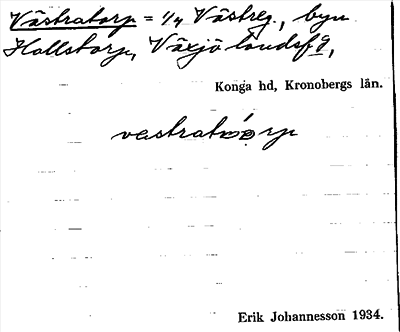 Västratorp = 1/4 Västreg., byn
Hallstorp, Växjö landsfg,
Konga hd, Kronobergs län.
vastratȯ́ɷrp
Erik Johannesson 1934.